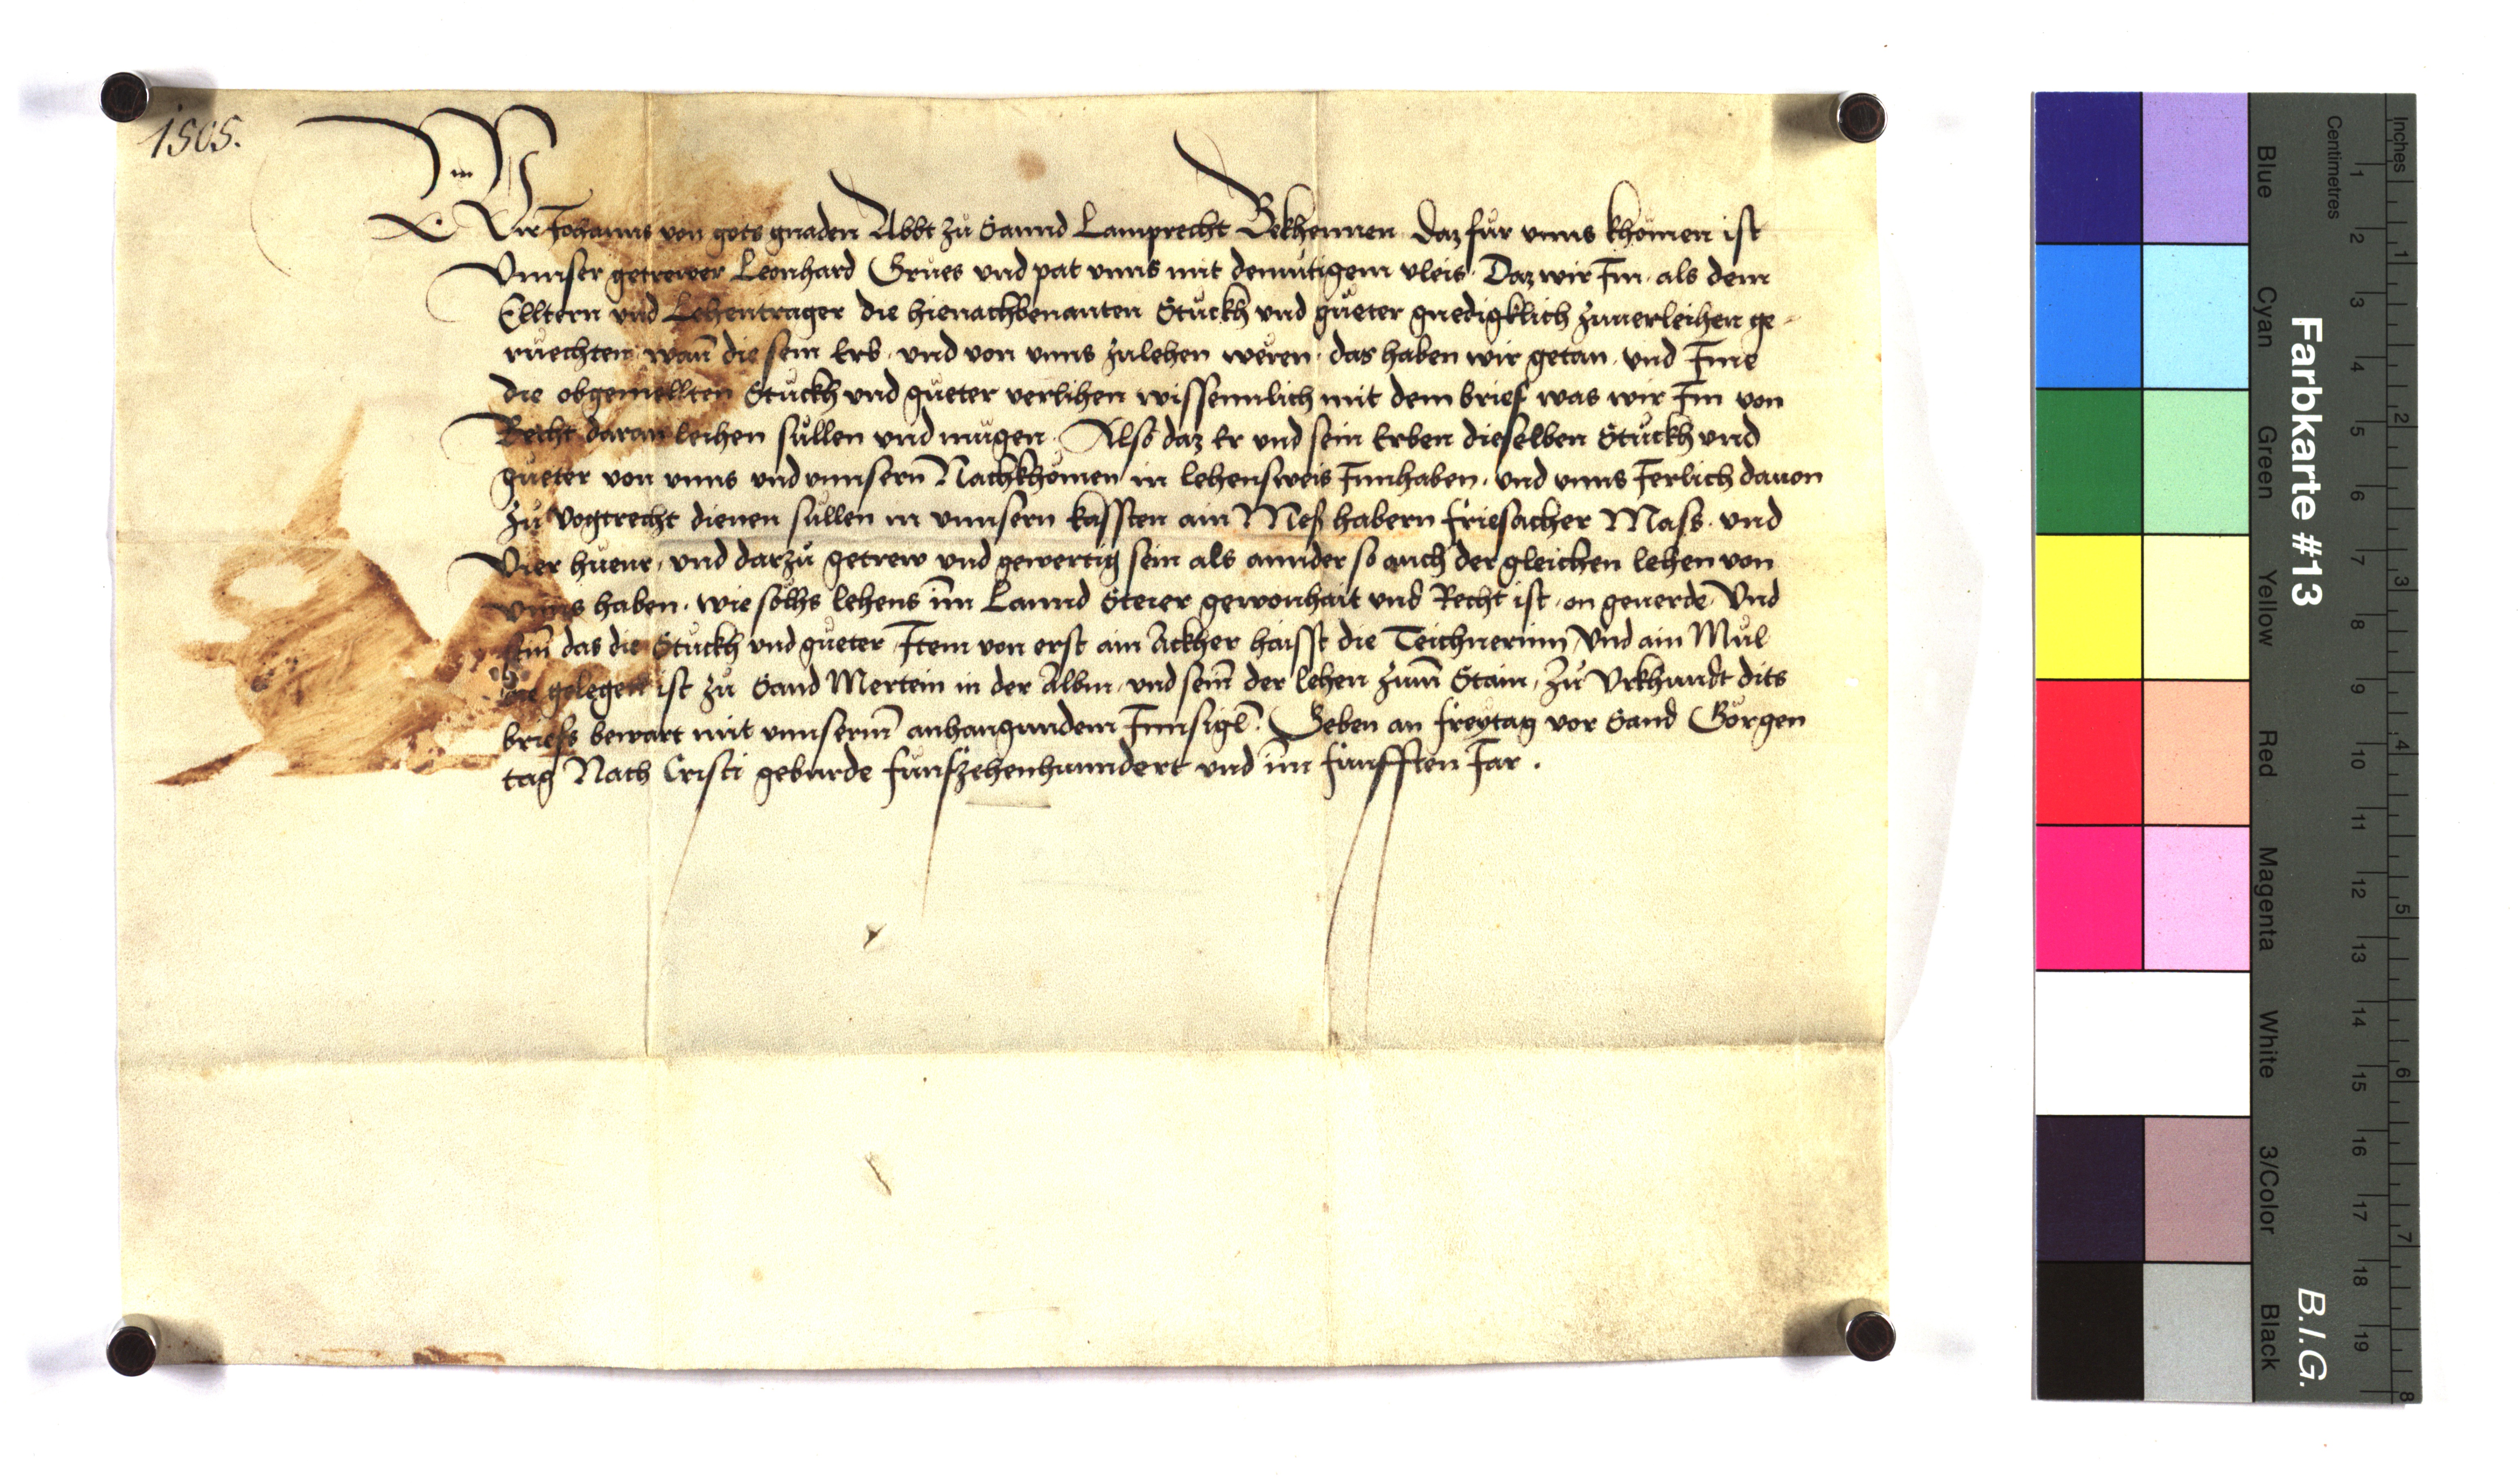 1505.
Wir Johanns von gots gnaden Abbt zů Sannd Lamprecht Bekhennen daz für unns khömen ist
Vnnser getrewer Leonhard Grůes vnd pat vnns mit demůtigem vleis. Daz wir Im als dem
Elltern vnd Lehentrager die hienachbenanten Stuckh vnd gůeter gnedigklich zuuerleihen ge-
ruechten, wan̄ die sein Erb, vnd von vnns zulehen wëren. das haben wir getan, vnd Ime
die obgemellten Stuckh vnd gůeter verlihen wissenntlich mit dem brief was wir Im von
Recht daran leihen süllen vnd mügen. Also daz Er vnd sein Erben dieselben Stuckh vnd
gůeter von vnns vnd vnnsern̄ Nachkhömen in lehensweis Innhaben. vnd vnns Jerlich dauon
zů Vogtrecht dienen süllen in vnnsern kassten ain Mess habern friesacher Mass. vnd
Vier hüenr, vnd darzů getrew vnd gewertig sein als annder so auch der gleichen lehen von
vnns haben. wie sölhs lehens im̄ Lannd Steier gewonhait vnd Recht ist, on geuerde, Vnd
sein̄ das die Stuckh vnd gůeter, Item von erst ain Ackher haisst die Teichnerinn, Vnd ain Mül
gelegen ist zů Sand Mertein in der Albm, vnd sein̄ der lehen zum̄ Stain, Zů Vrkhundt dits
briefs bewart mit vnnserm̄ anhangundem Innsigl̄. Geben an freytag vor Sand Görgen
tag Nach Cristi geburde fünfzehenhunndert vnd im̄ fünfften Jar.
Farbkarte #13
B.I.G.
Inches
Centimetres
1 2 3 4 5 6 7 8 9 10 11 12 13 14 15 16 17 18 19
1 2 3 4 5 6 7 8
Blue
Cyan
Green
Yellow
Red
Magenta
White
3/Color
Black